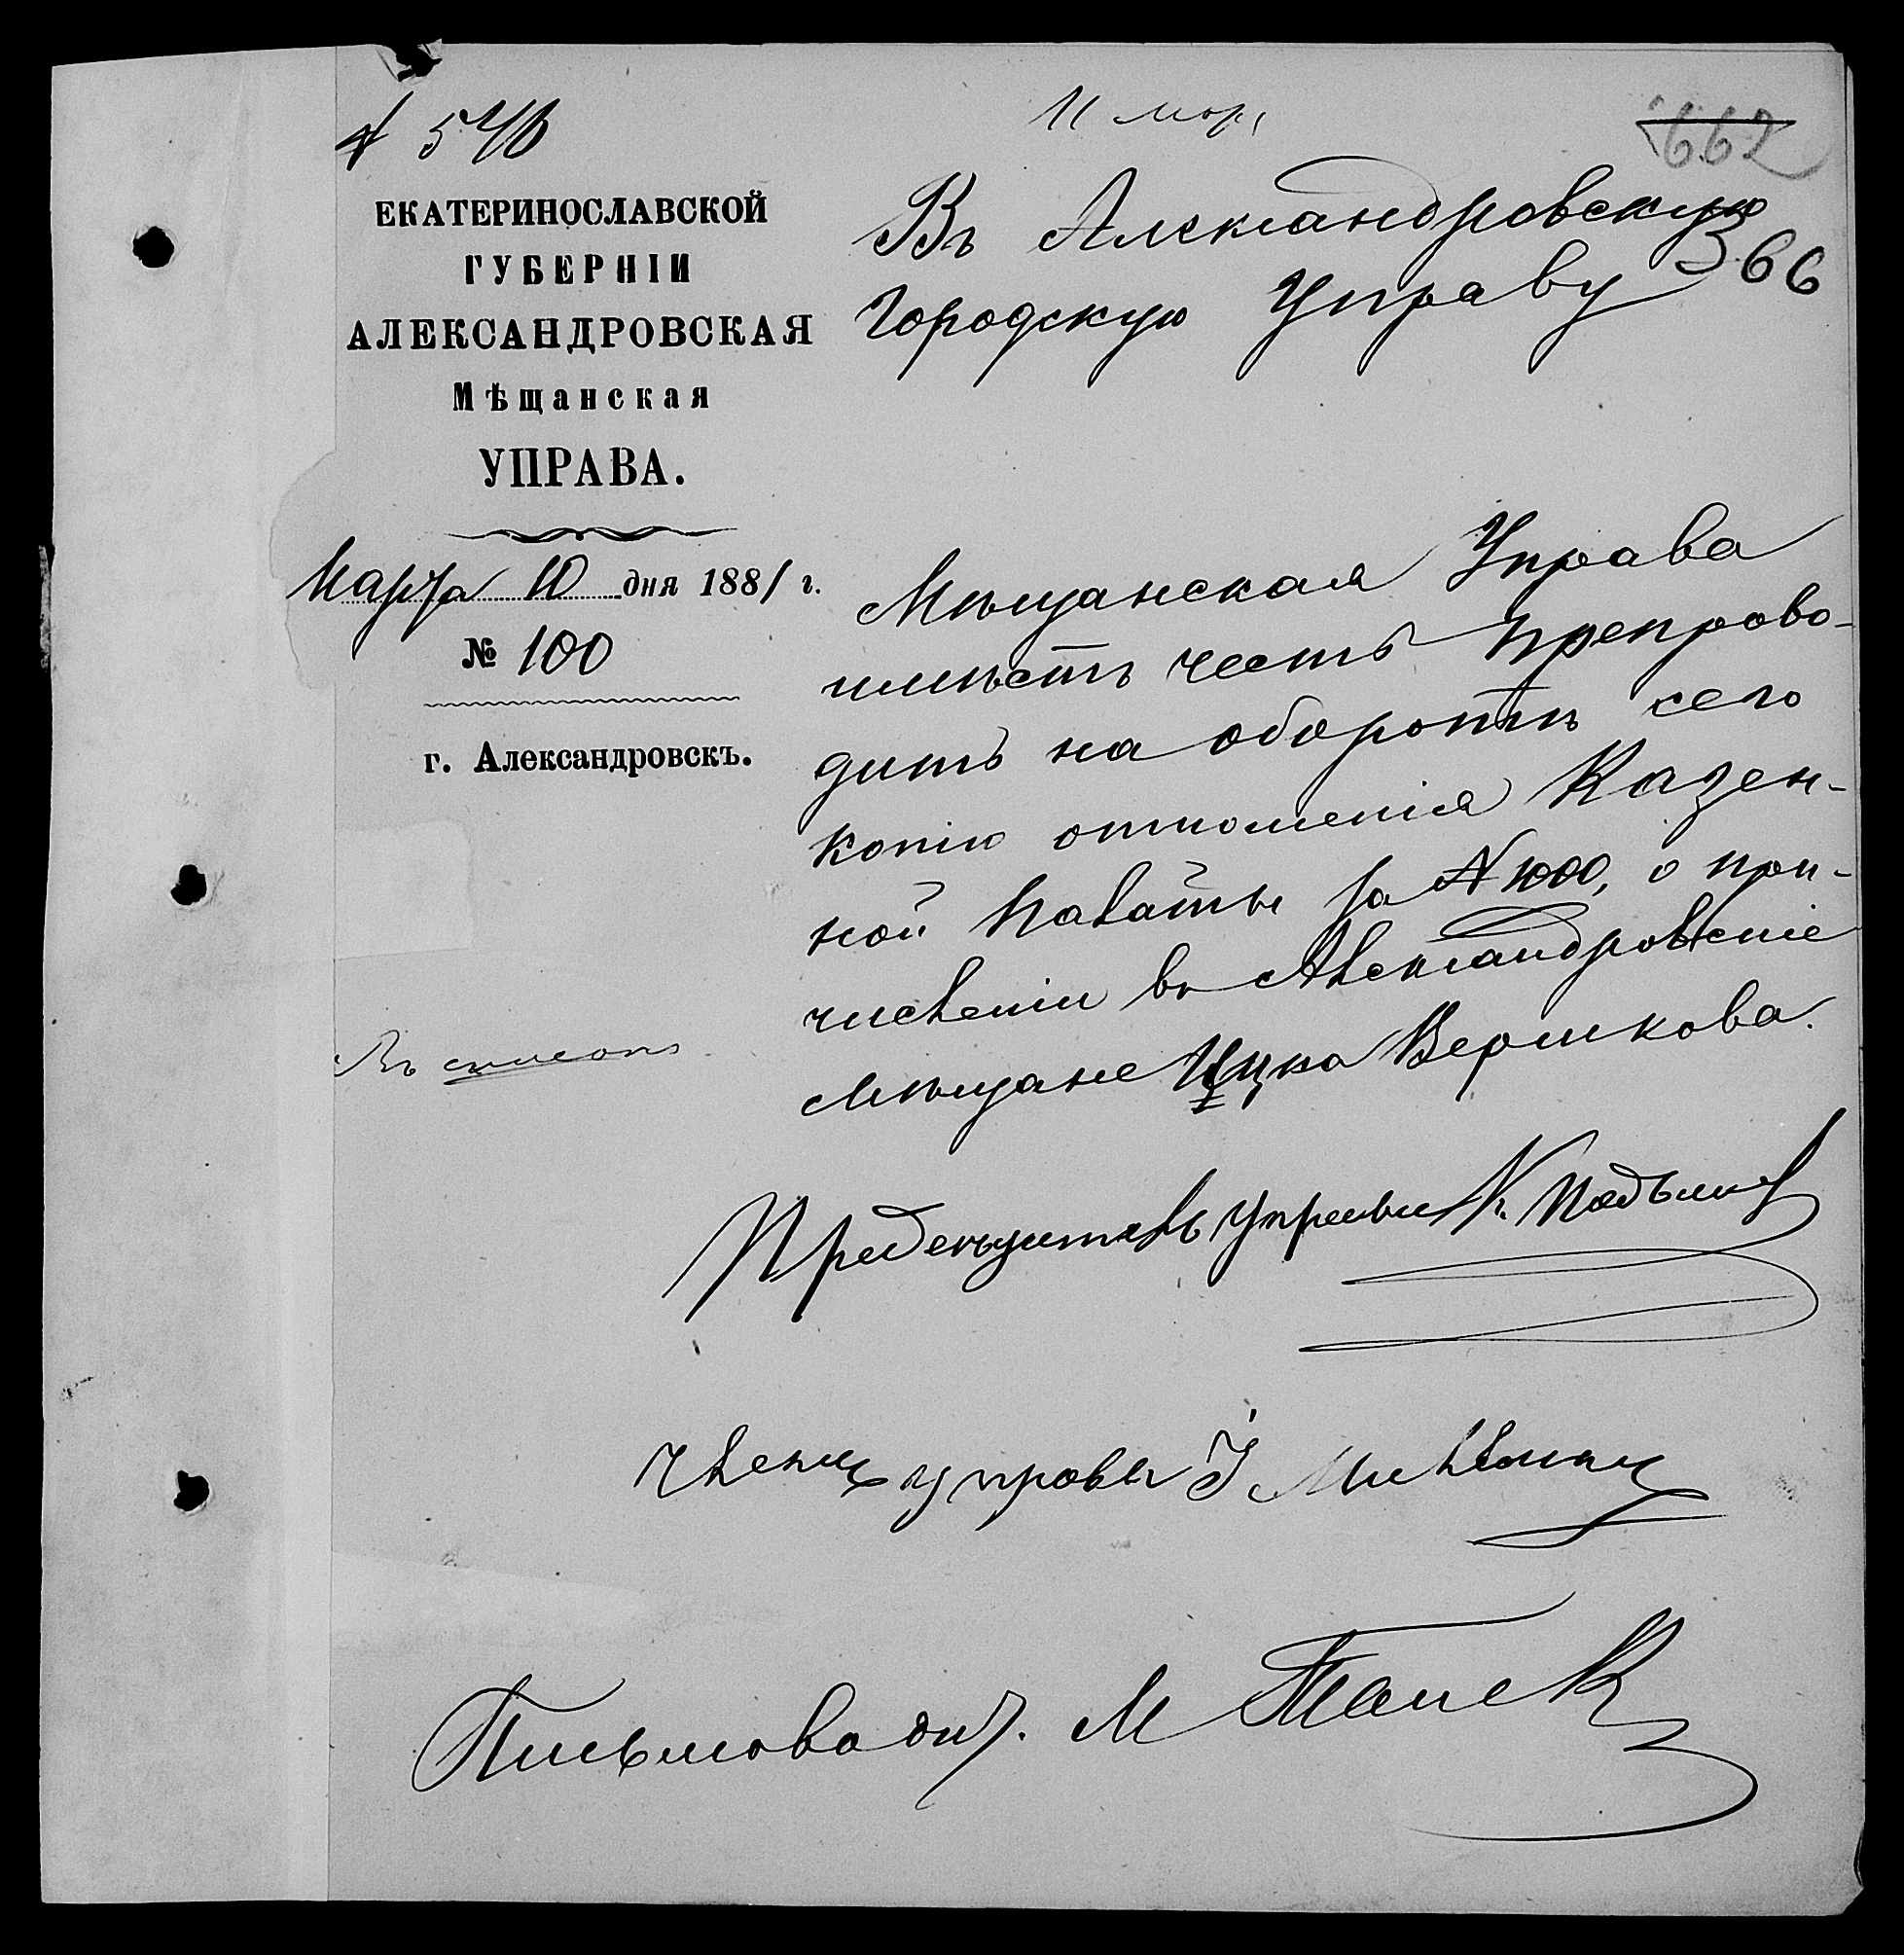 № 546
11 мар.
662
ЕКАТЕРИНОСЛАВСКОЙ
ГУБЕРНІИ
АЛЕКСАНДРОВСКАЯ
Мѣщанская
УПРАВА.
Марта 10 дня 1881 г.
№ 100
г. Александровскъ.
Въ списокъ
Въ Александровскую
366
Городскую Управу
Мѣщанская Управа
имѣетъ честь препрово-
дить на оборотѣ сего
копію отношенія Казен-
ной Палаты за № 1000, о при-
численіи въ Александровскіе
мѣщане Ицка Вершкова.
Предсѣдатель Управы К.
Членъ управы І.
Письмовод. М